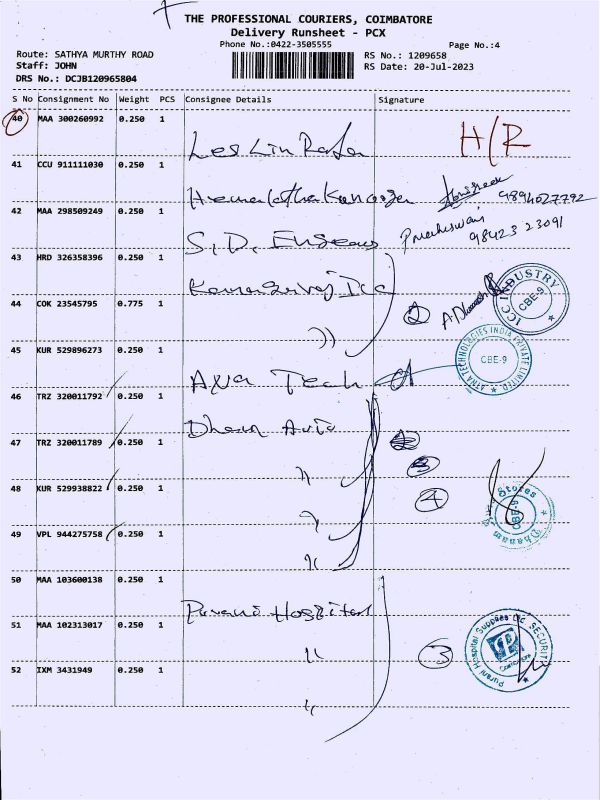 THE PROFESSIONAL COURIERS, COIMBATORE
Delivery Runsheet - PCX
Phone No.:0422-3505555 Page No.:4
Route: SATHYA MURTHY ROAD RS No.: 1209658
Staff: JOHN RS Date: 20-Jul-2023
DRS No.: DCJB120965804
S No Consignment No Weight PCS Consignee Details Signature
40 MAA 300260992 0.250 1 H/R
41 CCU 911111030 0.250 1
9894027792
42 MAA 298509249 0.250 1
98423 23091
S.D.
43 HRD 326358396 0.250 1
ICC INDUSTRY CBE-9
44 COK 23545795 0.775 1 2
"
45 KUR 529896273 0.250 1
TECHNOLOGIES INDIA PRIVATE LIMITED CBE-9
Tech
46 TRZ 320011792 0.250 1
47 TRZ 320011789 0.250 1
" 3
48 KUR 529938822 0.250 1 4
" Stores CBE-9
49 VPL 944275758 0.250 1
"
50 MAA 103600138 0.250 1
Purani Hospital
51 MAA 102313017 0.250 1
" 3 Purani Hospital Supplies Ltd SECURITY
52 IXM 3431949 0.250 1
"